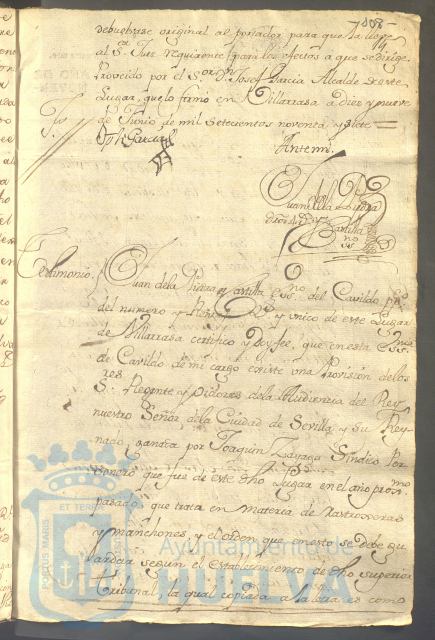 debuelbase original al portador para que la lleve
al Sr. Juez requirente para los efectos a que se dirige
Proveido por el Sor. Dn. Josef Garcia Alcalde de este
Lugar, que lo firmó en Villarrasa a diez y nueve
de Junio de mil setecientos noventa y siete =
Jph Garcia
Ante mi
Juan de la
Castilla
no
Testimonio. Juan de la Castilla esno. del Cavildo
del numero y y unico de este Lugar
de Villarrasa certifico y Doy fee, que en esta
de Cavildo de mi cargo existe una Provision de los
Sres. Regente y Oidores de la Audiencia del Rey
nuestro Señor de la Ciudad de Sevilla y su Rey-
nado, ganada por Joaquin Zayago Sindico Per-
sonero que fue de este dho Lugar en el año proxmo.
pasado que trata en materia de rastrojeras
y manchones, y el orden que en esto se debe gu-
ardar segun el establecimiento de dho superior
Tribunal, la qual copiada a la letra es como
PORTUS MARIS ET TERRE
Ayuntamiento de
HUELVA